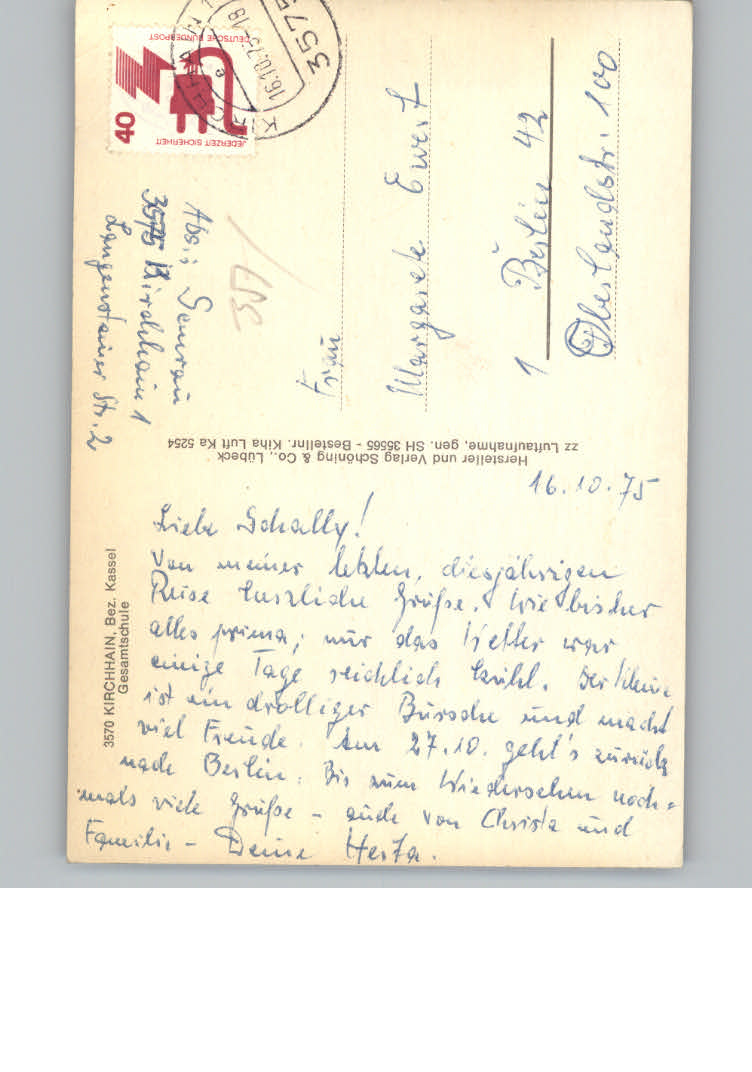 3570 KIRCHHAIN, Bez. Kassel
Gesamtschule
16.10.75
Liebe Schally!
Von meiner letzten, diesjährigen
Reise herzliche Grüße. Wie bisher
alles prima, nur das Wetter war
einige Tage reichlich kühl. Der Kleine
ist ein drolliger Bursche und macht
viel Freude. Am 27.10. geht's zurück
nach Berlin. Bis zum Wiedersehen noch=
mals viele Grüße - auch von Christa und
Familie - Deine Herta.
Hersteller und Verlag Schöning & Co., Lübeck
zz Luftaufnahme, gen. SH 35565 - Bestellnr. Kiha Luft Ka 5254
Abs.: Semrau
3575 Kirchhain 1
Langensteiner Str. 2
Frau
Margarete Ewert
1 Berlin 42
Oberlandstr. 100
DEUTSCHE BUNDESPOST
JEDERZEIT SICHERHEIT
40
3575
16.10.75-18
e